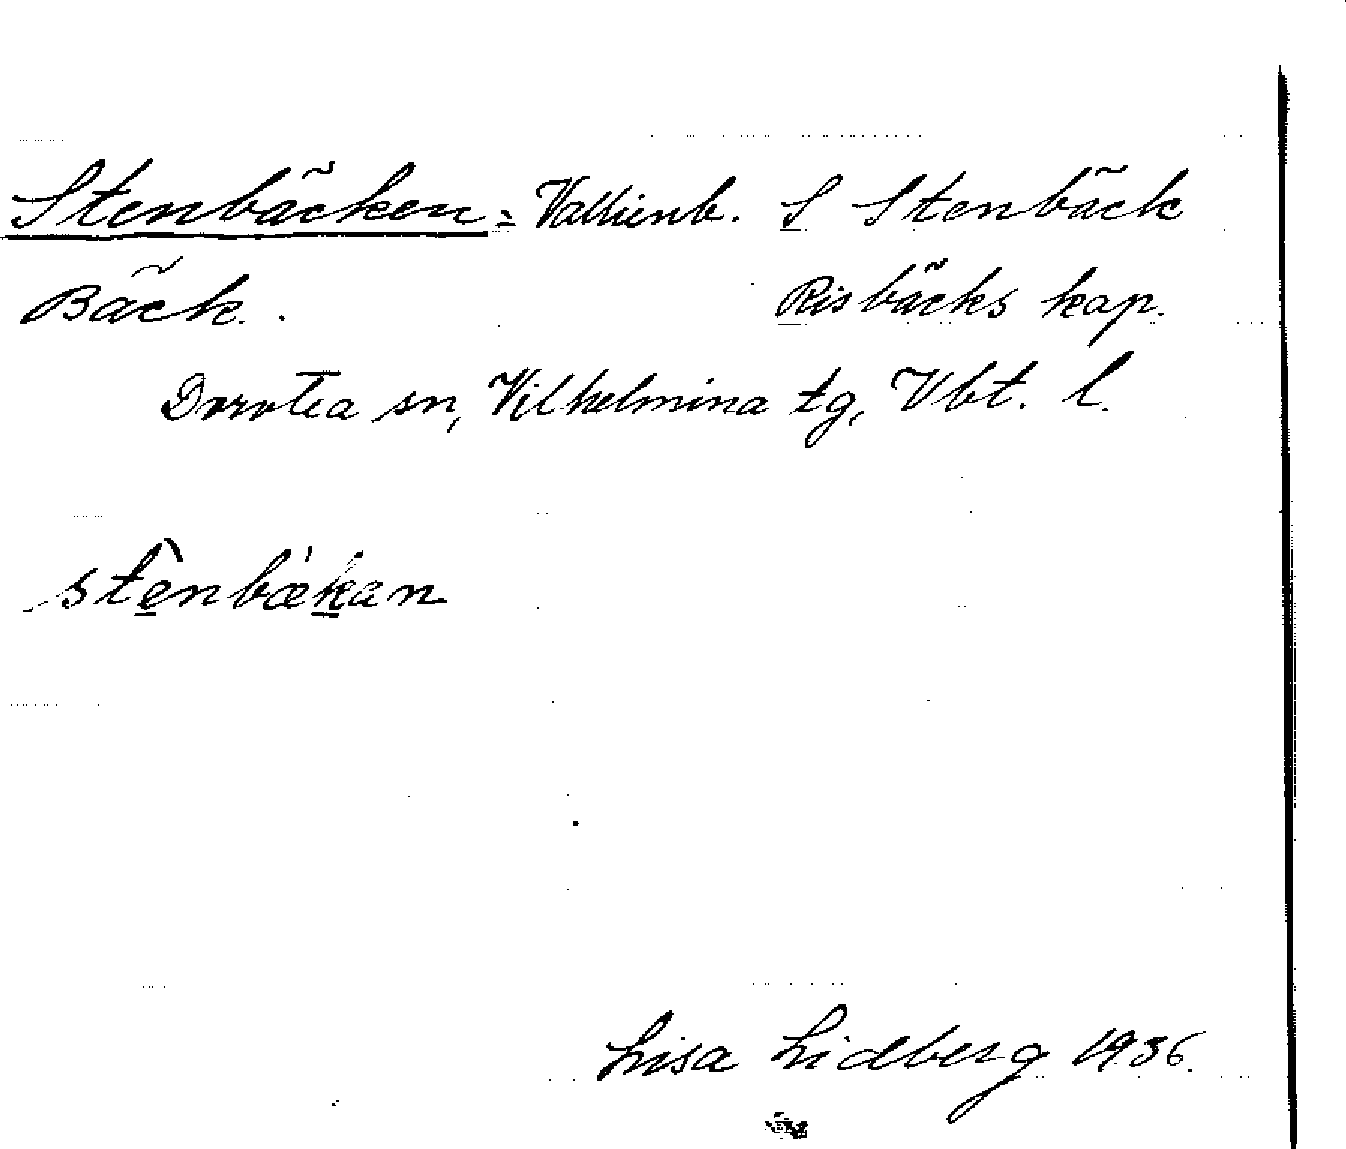 Stenbäcken = Vallienb. S Stenbäck
Bäck. Risbäcks kap.
Dorotea sn, Vilhelmina tg, Vbt. l.
stènbækan
Lisa Lidberg 1936.